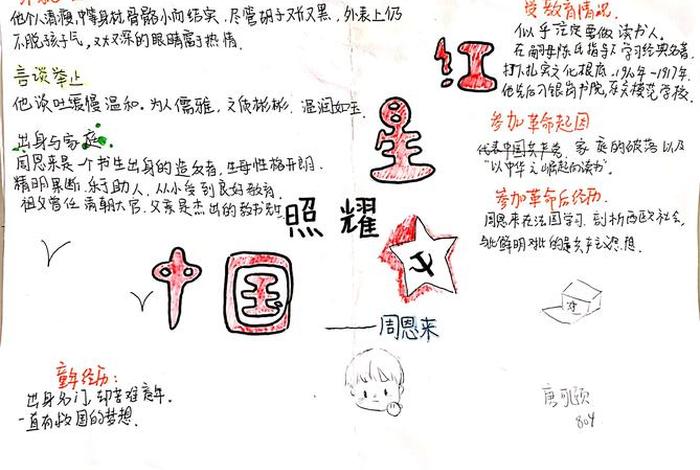 他个人清瘦,中等身材,骨骼小而结实,尽管胡子又长又黑,外表上仍
不脱孩子气,又大又深的眼睛富于热情.
言谈举止
他谈吐缓慢温和.为人儒雅,文质彬彬.温润如玉.
出身与家庭.
周恩来是一个书生出身的造反者,生母性格开朗.
精明果断.乐于助人,从小受到良好教育.
祖父曾任清朝大官.父亲是杰出的教书
受教育情况.
似乎注定要做读书人.
在嗣母陈氏指导下学习经典名著.
打下扎实文化根底.
他先后
参加革命起因
代表中国共产党. 家庭的破落以及
“以中华之崛起而读书”.
参加革命后经历.
周恩来在法国学习.剖析西欧社会,
与此鲜明对比的是共产主义思想.
红
星
照耀
中国
——周恩来
童年经历:
出身名门,却苦难童年.
一直有救国的梦想.
804